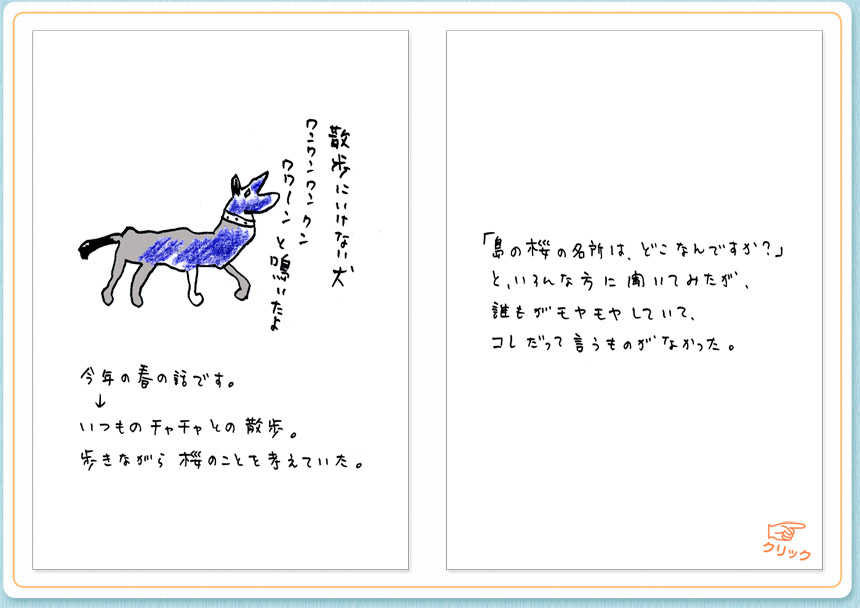 散歩にいけない犬
ワンワンワンワン
ワワーンと鳴いたよ
今年の春の話です。
↓
いつものチャチャとの散歩。
歩きながら桜のことを考えていた。
「島の桜の名所は、どこなんですか?」
と、いろんな方に聞いてみたが、
誰もがモヤモヤしていて、
コレだって言うものがなかった。
クリック